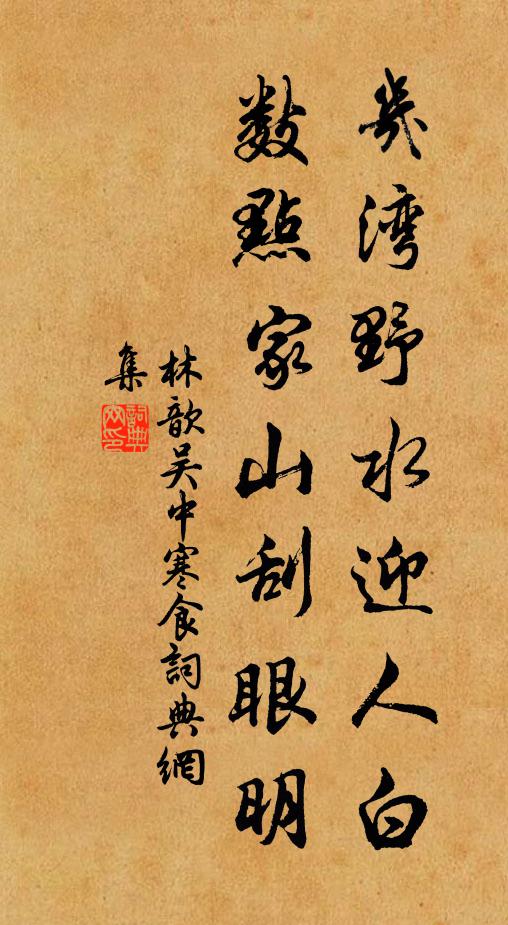 幾湾野水迎人白
數點家山刮眼明
林歆吴中寒食詞典網
集
詞典網印